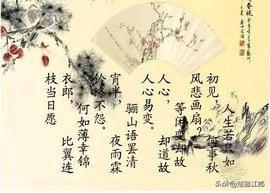 人生若只如
初见，何事秋
风悲画扇？
等闲变却故
人心，却道故
人心易变。
骊山语罢清
宵半，夜雨霖
铃终不怨。
何如薄幸锦
衣郎，比翼连
枝当日愿